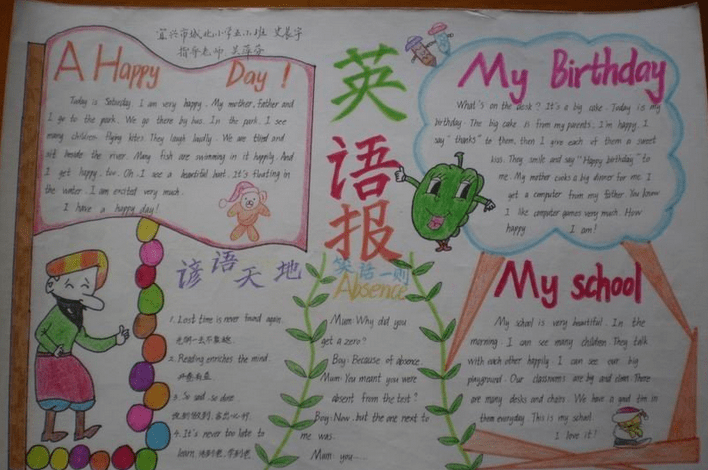 A Happy Day!
Today is Saturday. I am very happy. My mother, father and
I go to the park. We go there by bus. In the park, I see
many children flying kites. They laugh loudly. We are tired and
sit beside the river. Many fish are swimming in it happily. And
I get happy, too. Oh, I see a beautiful boat. It's floating in
the water. I am excited very much.
I have a happy day!
英
语
报
My Birthday
What's on the desk? It's a big cake. Today is my
birthday. The big cake is from my parents. I'm happy. I
say "thanks" to them, then I give each of them a sweet
kiss. They smile and say "Happy birthday" to
me. My mother cooks a big dinner for me. I
get a computer from my father. You know
I like computer games very much. How
happy I am!
谚语天地
1. Lost time is never found again.
2. Reading enriches the mind.
开卷有益
3. So said, so done.
4. It's never too late to
learn.
笑话一则
Absence
Mum: Why did you
get a zero?
Boy: Because of absence.
Mum: You meant you were
absent from the test?
Boy: Now, but the one next to
me was.
Mum: you....
My school
My school is very beautiful. In the
morning, I can see many children. They talk
with each other happily. I can see our big
playground. Our classrooms are big and clean. There
are many desks and chairs. We have a good time in
them everyday. This is my school.
I love it!